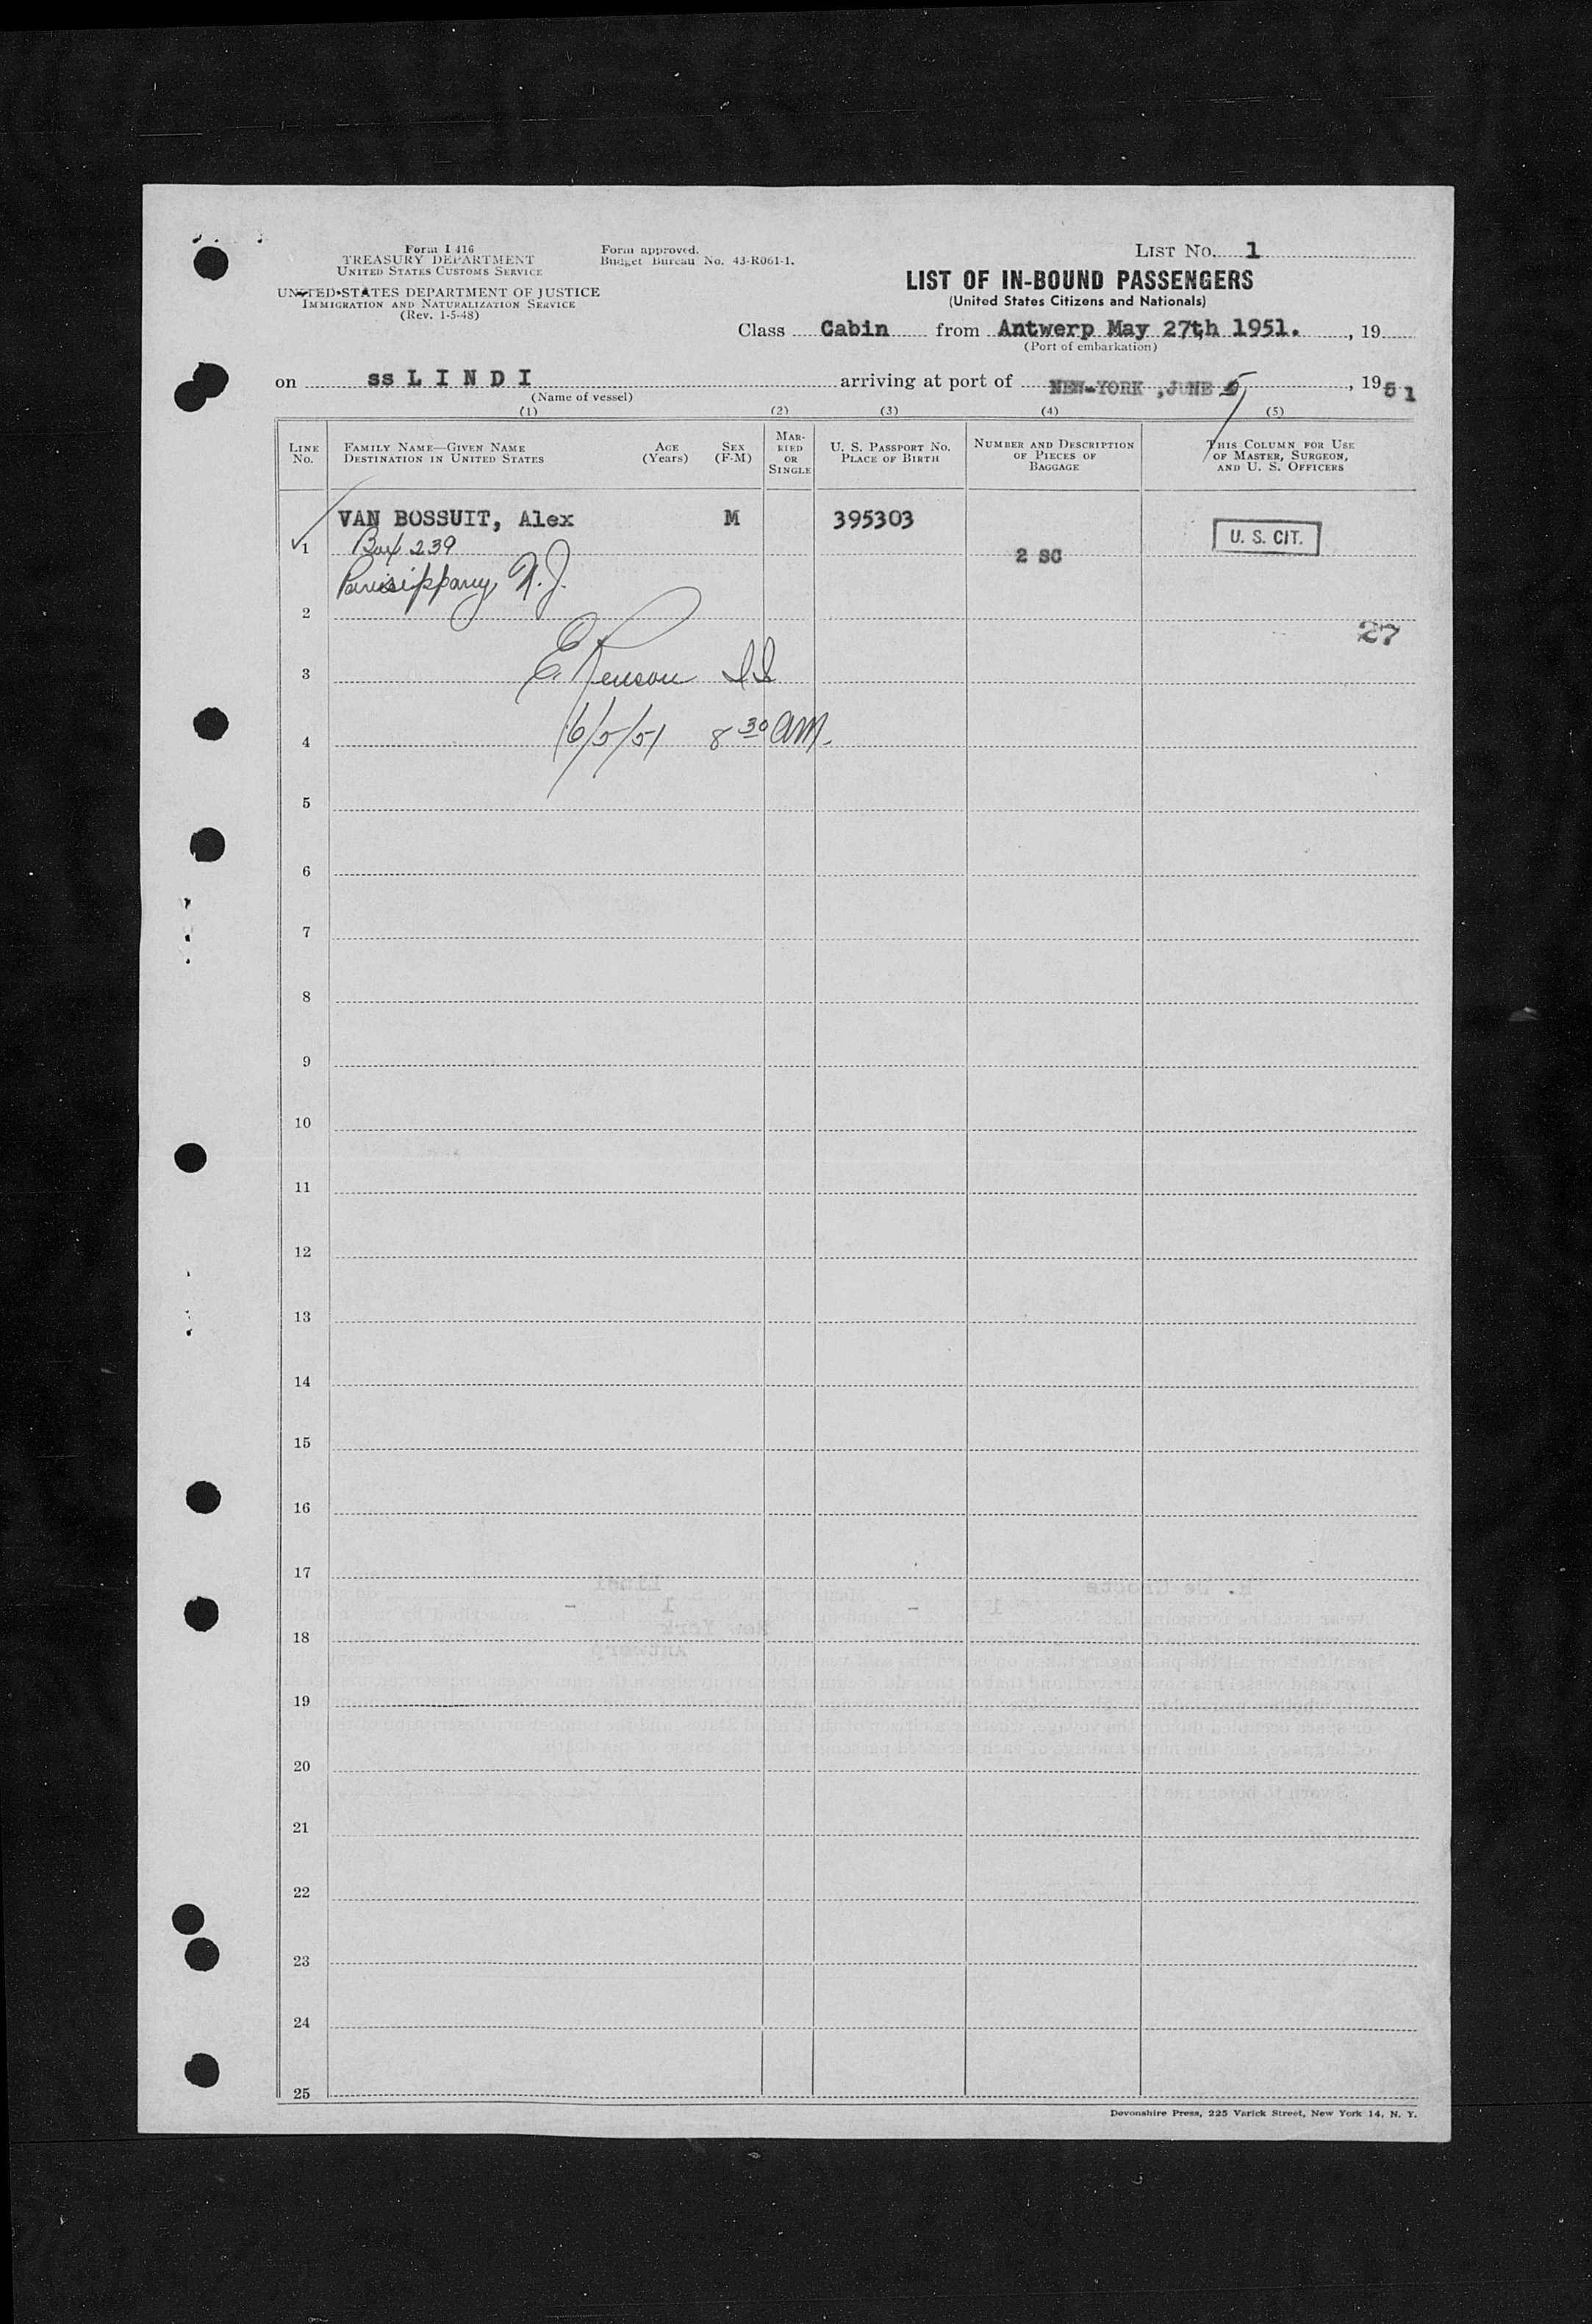 Form I 416
TREASURY DEPARTMENT
UNITED STATES CUSTOMS SERVICE
UNITED STATES DEPARTMENT OF JUSTICE
IMMIGRATION AND NATURALIZATION SERVICE
(Rev. 1-5-48)
Form approved.
Budget Bureau No. 43-R061-1.
LIST No. 1
LIST OF IN-BOUND PASSENGERS
(United States Citizens and Nationals)
Class Cabin from Antwerp May 27th 1951. , 19
(Port of embarkation)
on ss L I N D I arriving at port of NEW-YORK ,JUNE 5 , 1951
(Name of vessel)
(1) (2) (3) (4) (5)
LINE No.
FAMILY NAME—GIVEN NAME
DESTINATION IN UNITED STATES
AGE (Years)
SEX (F-M)
MARRIED OR SINGLE
U. S. PASSPORT NO.
PLACE OF BIRTH
NUMBER AND DESCRIPTION
OF PIECES OF
BAGGAGE
THIS COLUMN FOR USE
OF MASTER, SURGEON,
AND U. S. OFFICERS
VAN BOSSUIT, Alex M 395303
1 Box 239 2 SC U. S. CIT.
Parisippany, N.J.
2
27
3
4 6/5/51 8 30 AM.
5
6
7
8
9
10
11
12
13
14
15
16
17
18
19
20
21
22
23
24
25
Devonshire Press, 225 Varick Street, New York 14, N. Y.